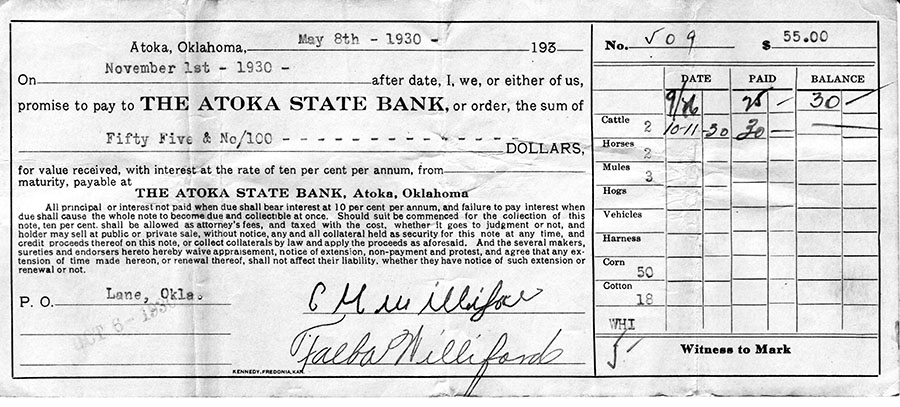 Atoka, Oklahoma, May 8th - 1930 - 193
On November 1st - 1930 - after date, I, we, or either of us,
promise to pay to THE ATOKA STATE BANK, or order, the sum of
Fifty Five & No/100 - - - - - - - - - - - - - - - DOLLARS,
for value received, with interest at the rate of ten per cent per annum, from
maturity, payable at
THE ATOKA STATE BANK, Atoka, Oklahoma
All principal or interest not paid when due shall bear interest at 10 per cent per annum, and failure to pay interest when
due shall cause the whole note to become due and collectible at once. Should suit be commenced for the collection of this
note, ten per cent. shall be allowed as attorney's fees, and taxed with the cost, whether it goes to judgment or not, and
holder may sell at public or private sale, without notice, any and all collateral held as security for this note at any time, and
credit proceeds thereof on this note, or collect collaterals by law and apply the proceeds as aforesaid. And the several makers,
sureties and endorsers hereto hereby waive appraisement, notice of extension, non-payment and protest, and agree that any ex-
tension of time made hereon, or renewal thereof, shall not affect their liability, whether they have notice of such extension or
renewal or not.
P. O. Lane, Okla.
OCT 6 - 1930
C M Williford
Falba Williford
KENNEDY, FREDONIA, KAN.
No. 09 $ 55.00
DATE PAID BALANCE
25 - 30 -
Cattle 2 10-11-30 30 -
Horses 2
Mules 3
Hogs
Vehicles
Harness
Corn 50
Cotton 18
WHI
Witness to Mark